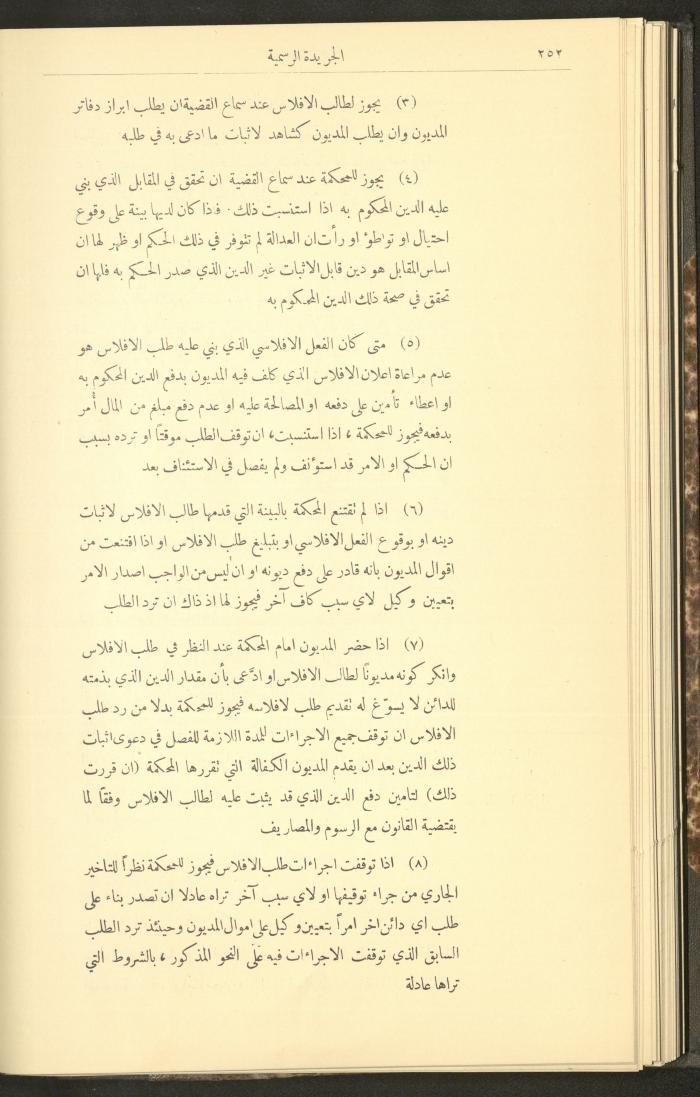 ٢٥٢
الجريدة الرسمية
(٣) يجوز لطالب الافلاس عند سماع القضية ان يطلب ابراز دفاتر
المديون وان يطلب المديون كشاهد لاثبات ما ادعى به في طلبه
(٤) يجوز للمحكمة عند سماع القضية ان تحقق في المقابل الذي بني
عليه الدين المحكوم به اذا استنسبت ذلك. فاذا كان لديها بينة على وقوع
احتيال او تواطؤ او رأت ان العدالة لم تتوفر في ذلك الحكم او ظهر لها ان
اساس المقابل هو دين قابل الاثبات غير الدين الذي صدر الحكم به فلها ان
تحقق في صحة ذلك الدين المحكوم به
(٥) متى كان الفعل الافلاسي الذي بني عليه طلب الافلاس هو
عدم مراعاة اعلان الافلاس الذي كلف فيه المديون بدفع الدين المحكوم به
او اعطاء تأمين على دفعه او المصالحة عليه او عدم دفع مبلغ من المال أُمر
بدفعه فيجوز للمحكمة ، اذا استنسبت، ان توقف الطلب موقتًا او ترده بسبب
ان الحكم او الامر قد استؤنف ولم يفصل في الاستئناف بعد
(٦) اذا لم تقتنع المحكمة بالبينة التي قدمها طالب الافلاس لاثبات
دينه او بوقوع الفعل الافلاسي او بتبليغ طلب الافلاس او اذا اقتنعت من
اقوال المديون بانه قادر على دفع ديونه او ان ليس من الواجب اصدار الامر
بتعيين وكيل لاي سبب كاف آخر فيجوز لها اذ ذاك ان ترد الطلب
(٧) اذا حضر المديون امام المحكمة عند النظر في طلب الافلاس
وانكر كونه مديونًا لطالب الافلاس او ادَّعى بأن مقدار الدين الذي بذمته
للدائن لا يسوّغ له تقديم طلب لافلاسه فيجوز للمحكمة بدلا من رد طلب
الافلاس ان توقف جميع الاجراءات للمدة اللازمة للفصل في دعوى اثبات
ذلك الدين بعد ان يقدم المديون الكفالة التي تقررها المحكمة (ان قررت
ذلك) لتامين دفع الدين الذي قد يثبت عليه لطالب الافلاس وفقًا لما
يقتضية القانون مع الرسوم والمصاريف
(٨) اذا توقفت اجراءات طلب الافلاس فيجوز للمحكمة نظراً للتاخير
الجاري من جراء توقيفها او لاي سبب آخر تراه عادلا ان تصدر بناء على
طلب اي دائن اخر امراً بتعيين وكيل على اموال المديون وحينئذ ترد الطلب
السابق الذي توقفت الاجراءات فيه على النحو المذكور ، بالشروط التي
تراها عادلة